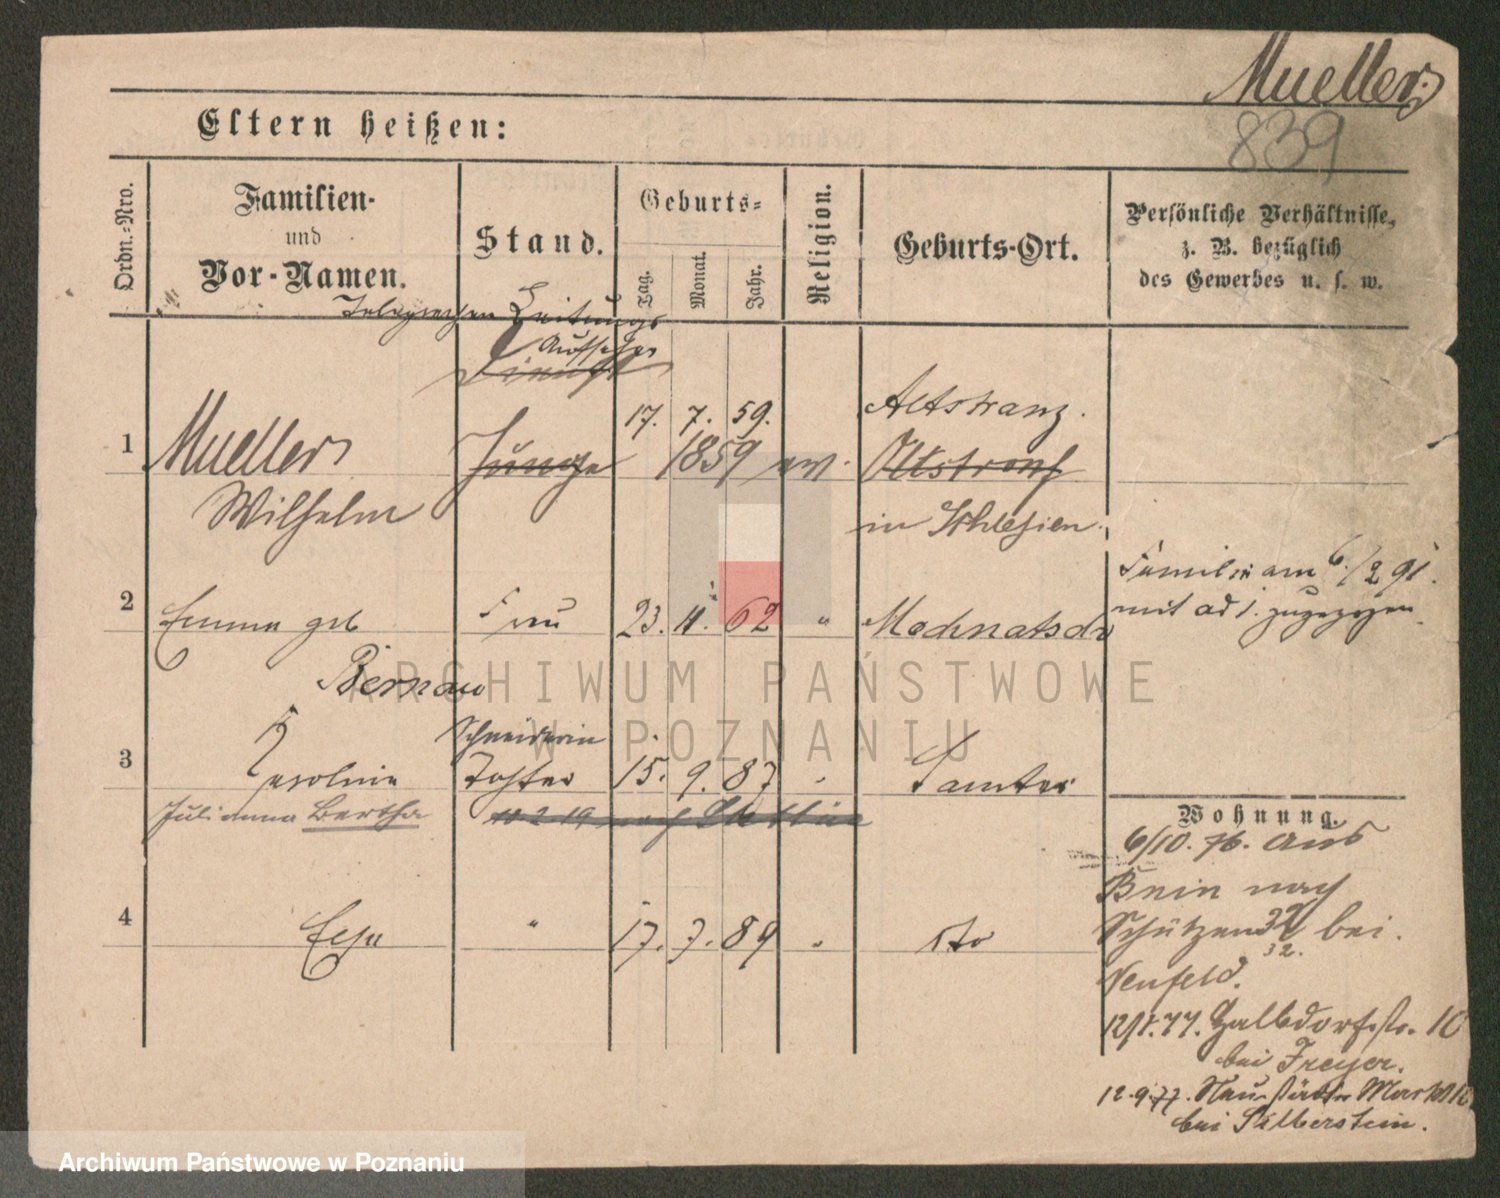 Mueller
839
Eltern heißen:
Ordn.-Nro.
Familien-
und
Vor-Namen.
Stand.
Geburts-
Tag.
Monat.
Jahr.
Religion.
Geburts-Ort.
Persönliche Verhältnisse,
z. B. bezüglich
des Gewerbes u. s. w.
Telegraphen Leitungs
Aufseher
1
Mueller
Wilhelm
Junge
17. 7. 59.
1859
ev.
Altstranz.
in Schlesien.
Familie am 6./2 91.
mit ad 1. zugezogen.
2
Emma geb
Bernau
Frau
23. 11. 62
"
3
Karoline
Julianna Bertha
Schneiderin
Tochter
15. 9. 87
"
Samter
10 2 19 nach Stettin
Wohnung.
6/10. 76. aus
Bnin nach
Schützen 32 bei
32.
Neufeld.
12/1. 77. Halbdorfstr. 10
bei Freyer.
12.9.77. Neustädter Markt 10
bei Silberstein.
4
"
17. 7. 89
"
dto
ARCHIWUM PAŃSTWOWE
W POZNANIU
Archiwum Państwowe w Poznaniu